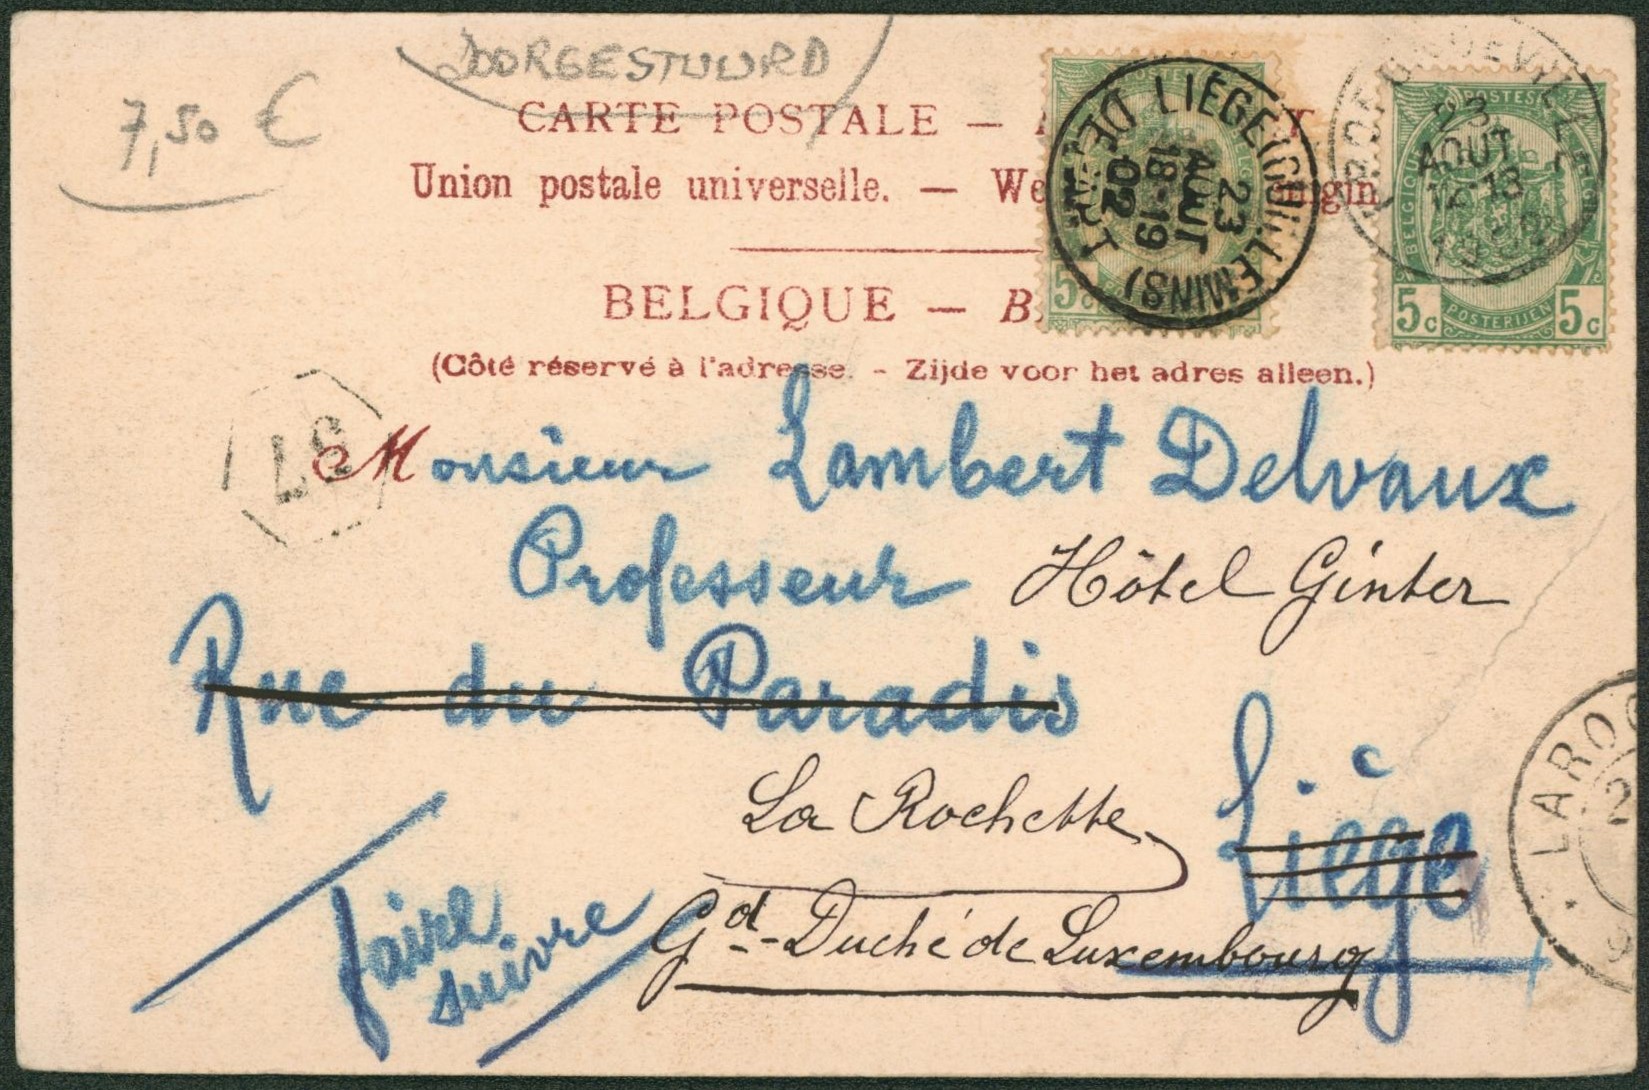 DOORGESTUURD
7,50 €
CARTE POSTALE —
Union postale universelle. — We
BELGIQUE — B
(Côté réservé à l'adresse. - Zijde voor het adres alleen.)
LIÉGE (GUILLEMINS)
DÉPART
23
AOUT
18-19
02
23
AOUT
12-13
1902
POSTES
BELGIQUE
5c 5c
POSTERIJEN
5c
37
Monsieur Lambert Delvaux
Professeur Hôtel Ginter
Rue du Paradis
La Rochette
Liège
faire
suivre
Gd-Duché de Luxembourg
LAROC
2
9